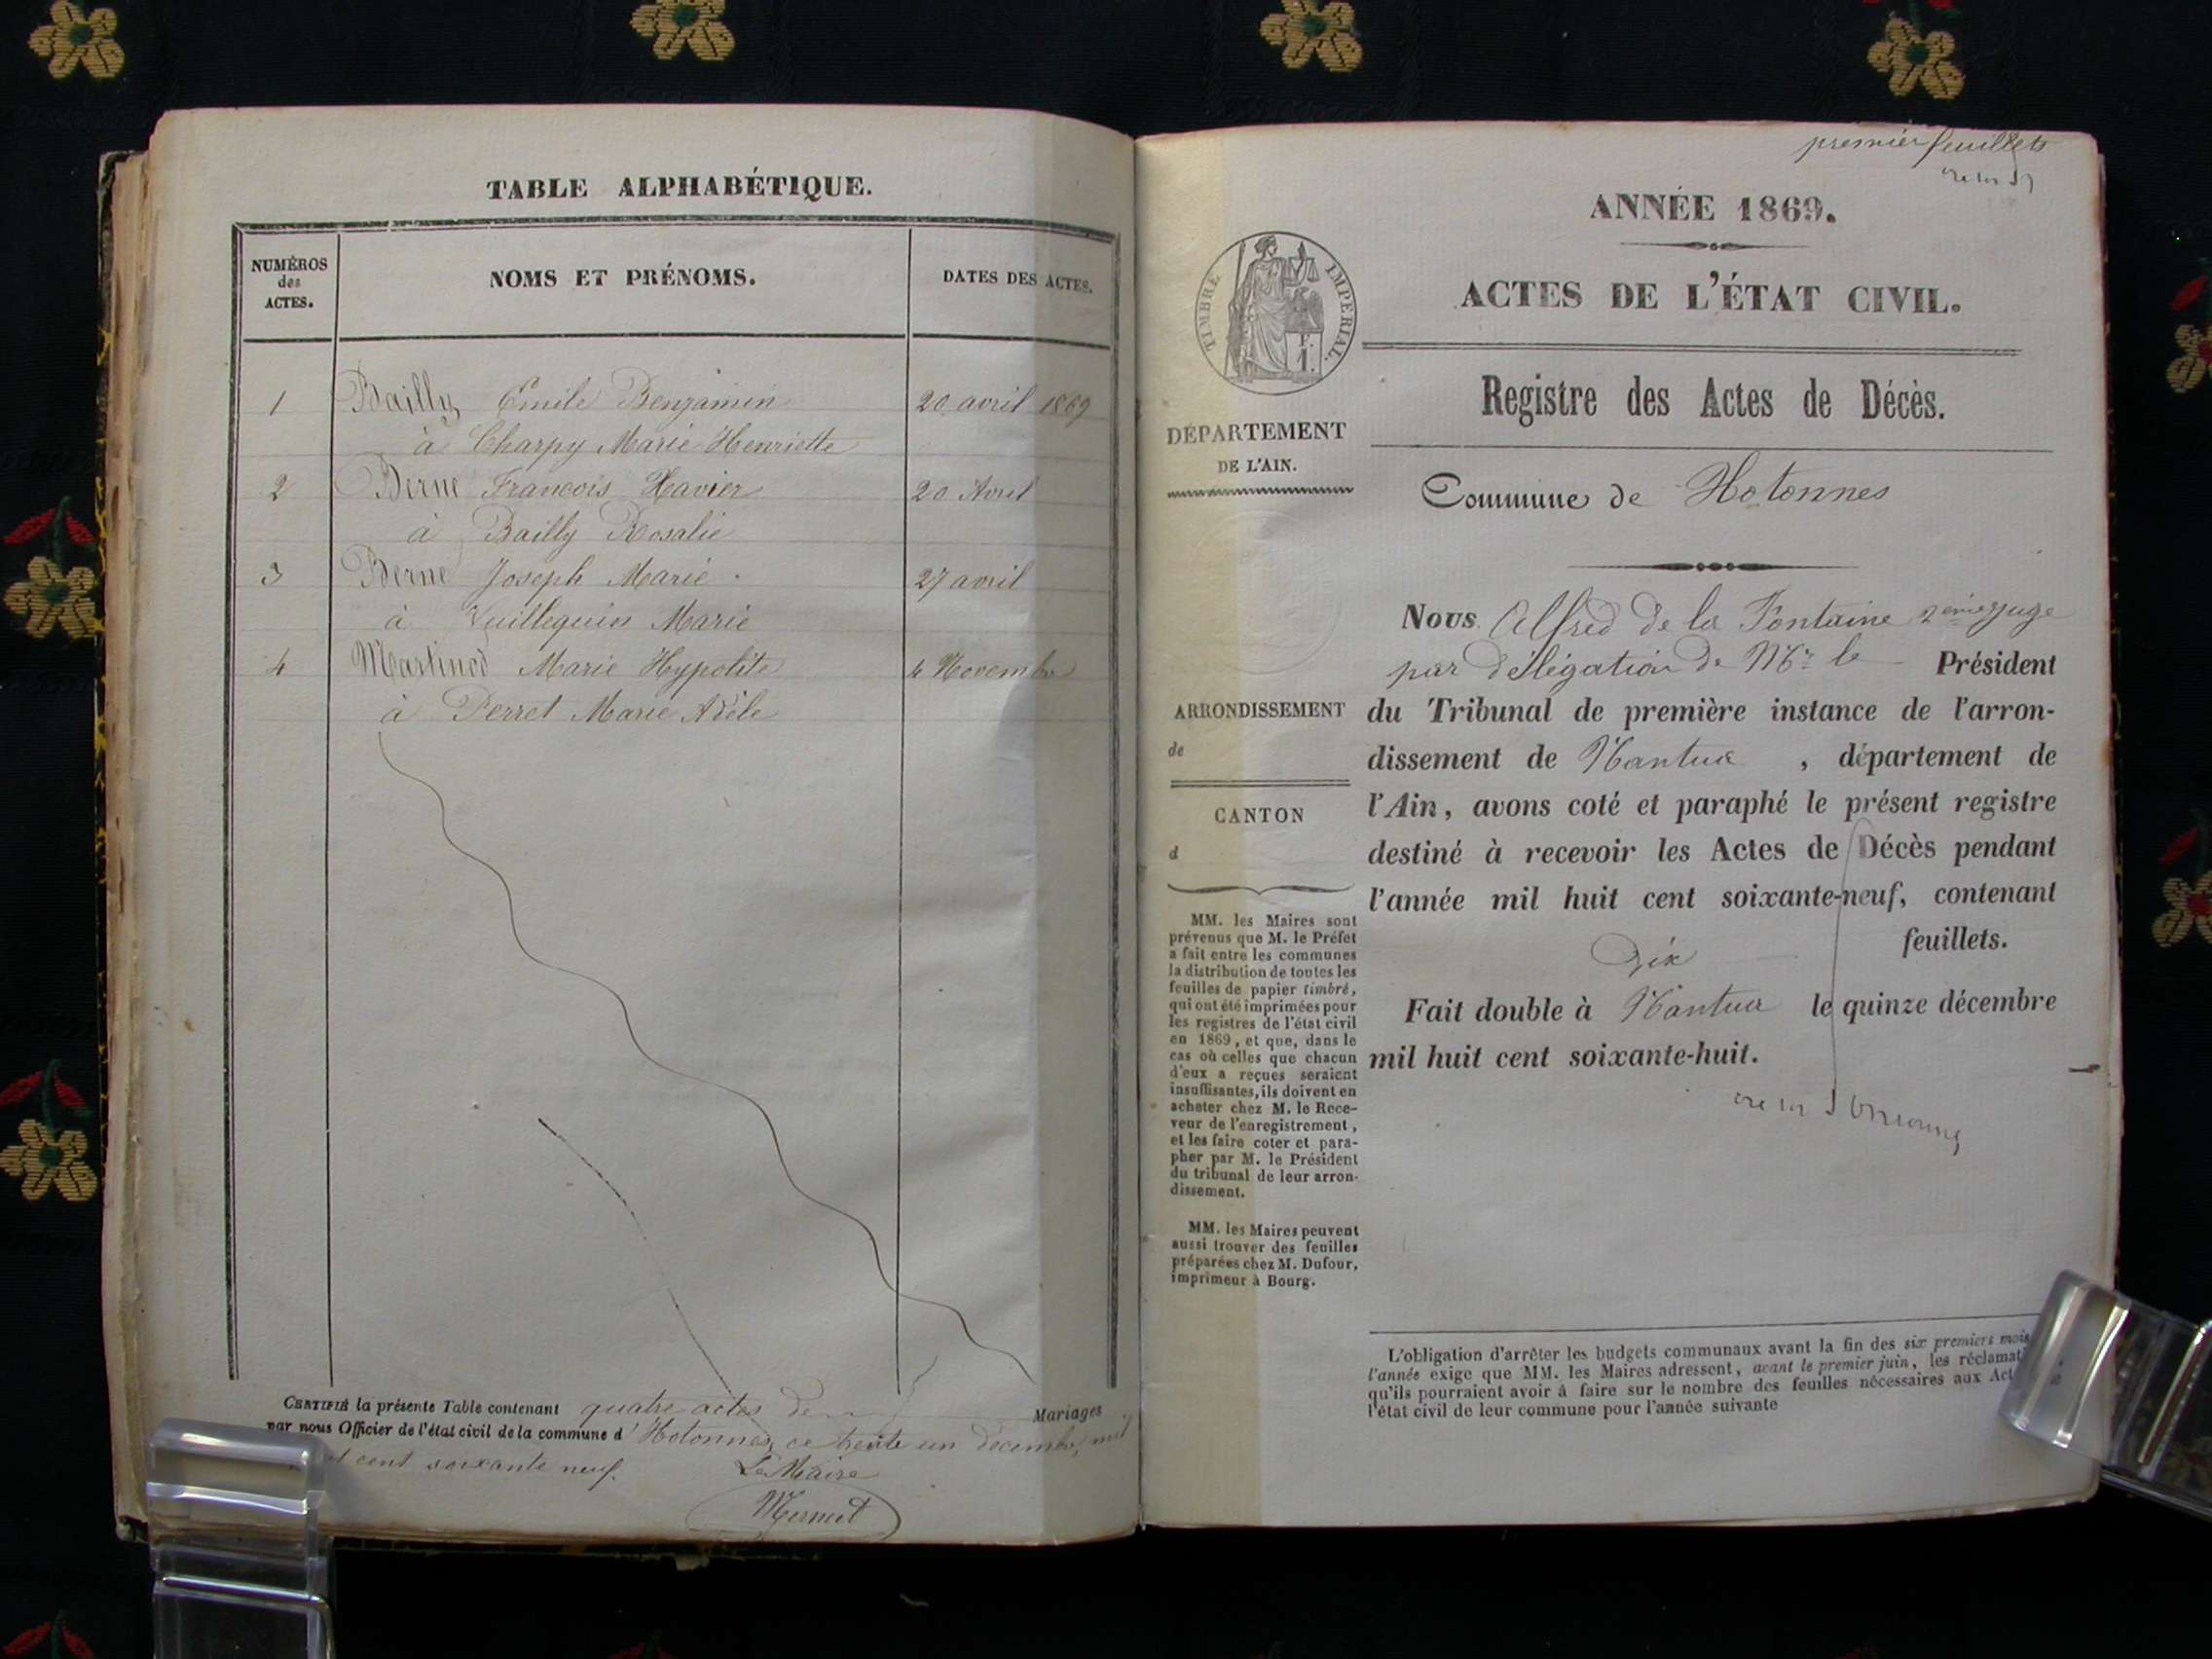 TABLE ALPHABÉTIQUE.
NUMÉROS
des
ACTES.
NOMS ET PRÉNOMS.
DATES DES ACTES.
1 Bailly Emile Benjamin 20 avril 1869
à Charpy Marie Henriette
2 Berne Francois Xavier 20 Avril
à Bailly Rosalie
3 Berne Joseph Marie 27 avril
à Vuillequin Marie
4 Martinod Marie Hypolite 4 Novembre
à Perret Marie Adèle
CERTIFIÉ la présente Table contenant quatre actes de Mariages
par nous Officier de l'état civil de la commune d'Hotonnes, ce trente un décembre, mil
cent soixante neuf.
Le Maire
premier feuillets
ANNÉE 1869.
ACTES DE L'ÉTAT CIVIL.
Registre des Actes de Décès.
Commune de Hotonnes
TIMBRE IMPÉRIAL.
F.
1.
DÉPARTEMENT
DE L'AIN.
ARRONDISSEMENT
de
CANTON
d
MM. les Maires sont
prévenus que M. le Préfet
a fait entre les communes
la distribution de toutes les
feuilles de papier timbré,
qui ont été imprimées pour
les registres de l'état civil
en 1869, et que, dans le
cas où celles que chacun
d'eux a reçues seraient
insuffisantes, ils doivent en
acheter chez M. le Rece-
veur de l'enregistrement,
et les faire coter et para-
pher par M. le Président
du tribunal de leur arron-
dissement.
MM. les Maires peuvent
aussi trouver des feuilles
préparées chez M. Dufour,
imprimeur à Bourg.
Nous Alfred de la Fontaine 2eme juge
par délégation de Mr le Président
du Tribunal de première instance de l'arron-
dissement de Nantua, département de
l'Ain, avons coté et paraphé le présent registre
destiné à recevoir les Actes de Décès pendant
l'année mil huit cent soixante-neuf, contenant
Dix feuillets.
Fait double à Nantua le quinze décembre
mil huit cent soixante-huit.
L'obligation d'arrêter les budgets communaux avant la fin des six premiers mois
l'année exige que MM. les Maires adressent, avant le premier juin, les réclamati
qu'ils pourraient avoir à faire sur le nombre des feuilles nécessaires aux Act
l'état civil de leur commune pour l'année suivante